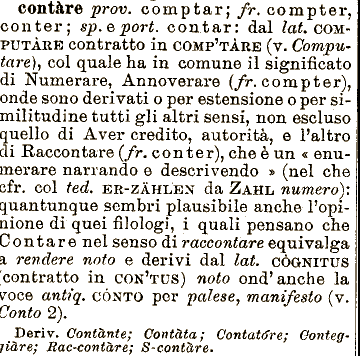 contàre prov. comptar; fr. compter,
conter; sp. e port. contar: dal lat. COM-
PUTÀRE contratto in COMP'TÀRE (v. Compu-
tare), col quale ha in comune il significato
di Numerare, Annoverare (fr. compter),
onde sono derivati o per estensione o per si-
militudine tutti gli altri sensi, non escluso
quello di Aver credito, autorità, e l'altro
di Raccontare (fr. conter), che è un « enu-
merare narrando e descrivendo » (nel che
cfr. col ted. ER-ZÄHLEN da ZAHL numero):
quantunque sembri plausibile anche l'opi-
nione di quei filologi, i quali pensano che
Contare nel senso di raccontare equivalga
a rendere noto e derivi dal lat. CÒGNITUS
(contratto in CON'TUS) noto ond'anche la
voce antiq. CÓNTO per palese, manifesto (v.
Conto 2).
Deriv. Contànte; Contàta; Contatóre; Conteg-
giàre; Rac-contàre; S-contàre.